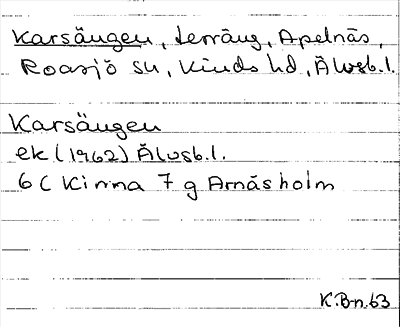 Karsängen, terräng, Apelnäs,
Roasjö sn, Kinds hd, Älvsb.l.
Karsängen
ek (1962) Älvsb.l.
6C Kinna 7g Arnäsholm
K.Bn.63